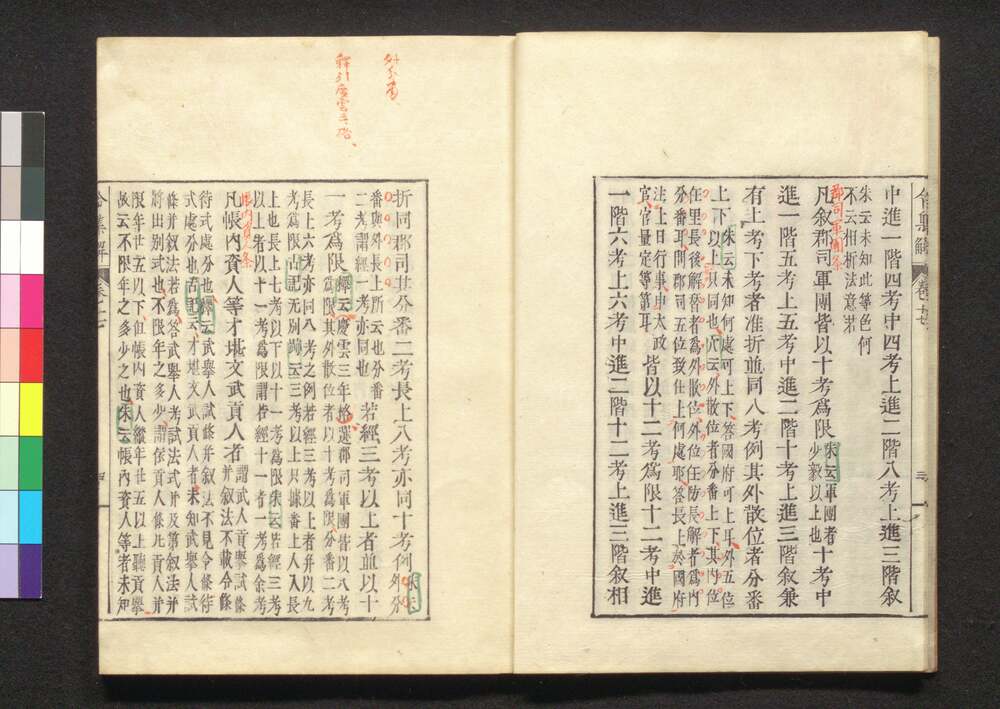 中進一階四考中四考上進二階八考上進三階叙
朱云未知此等色何
不云相折法意若
凡叙郡司軍團皆以十考爲限
朱云軍團者
少毅以上也
十考中
郡司軍團条
進一階五考上五考中進二階十考上進三階叙兼
有上考下考者准折並同八考例其外散位者分番
上下
朱云未知何處可上下答國府可上下耳外五位
以上只同也穴云外散位者分番上下其内位
在里長後解替者爲外散位外位任防長解者爲内
分番耳問郡司五位致仕上何處耶答長上於國府
注上日行事申大政
官官量定等第耳
皆以十二考爲限十二考中進
一階六考上六考中進二階十二考上進三階叙相
令集解
卷十七
三
外分番
釋引慶雲三格
折同郡司其分番二考長上八考亦同十考例
朱云
外分
番與外長上所云也分番
二考謂經一考亦同也
若經三考以上者並以十
一考爲限
釋云慶雲三年格選郡司軍團皆以八考
爲限其外散位者以十考爲限分番二考
長上六考亦同八考之例若經三考以上者并以九
考爲限古記云無別跡云三考以上只據番上人入長
上也長上七考以下以十一考爲限朱云若經三考
以上者以十一考爲限謂若經十一者一考爲余考
帳内資人条
凡帳内資人等才堪文武貢人者
謂武人貢擧試條
并叙法不載令條
待式處分也釋云武擧人試條并叙法不見令條待
式處分也古記云才堪文武貢人者未知武擧人試
條并叙法若爲答武擧人考試法式并及第叙法并
將出別式也不限年之多少謂依貢人條凡貢人并
限年廿五以下但帳内資人縱年廿五以上聽貢擧
故云不限年之多少之也朱云帳内資人等者未知
令集解
卷十七
四